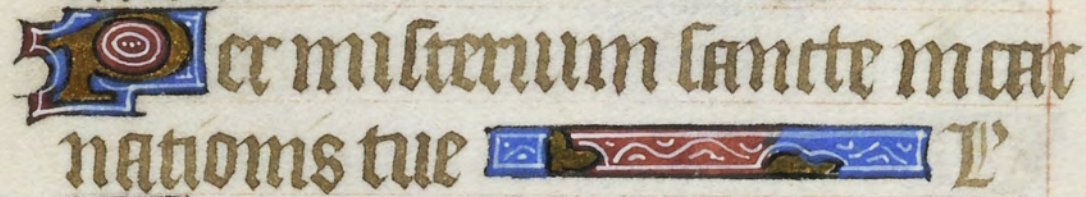 Per misterium sancte incar
nationis tue L'